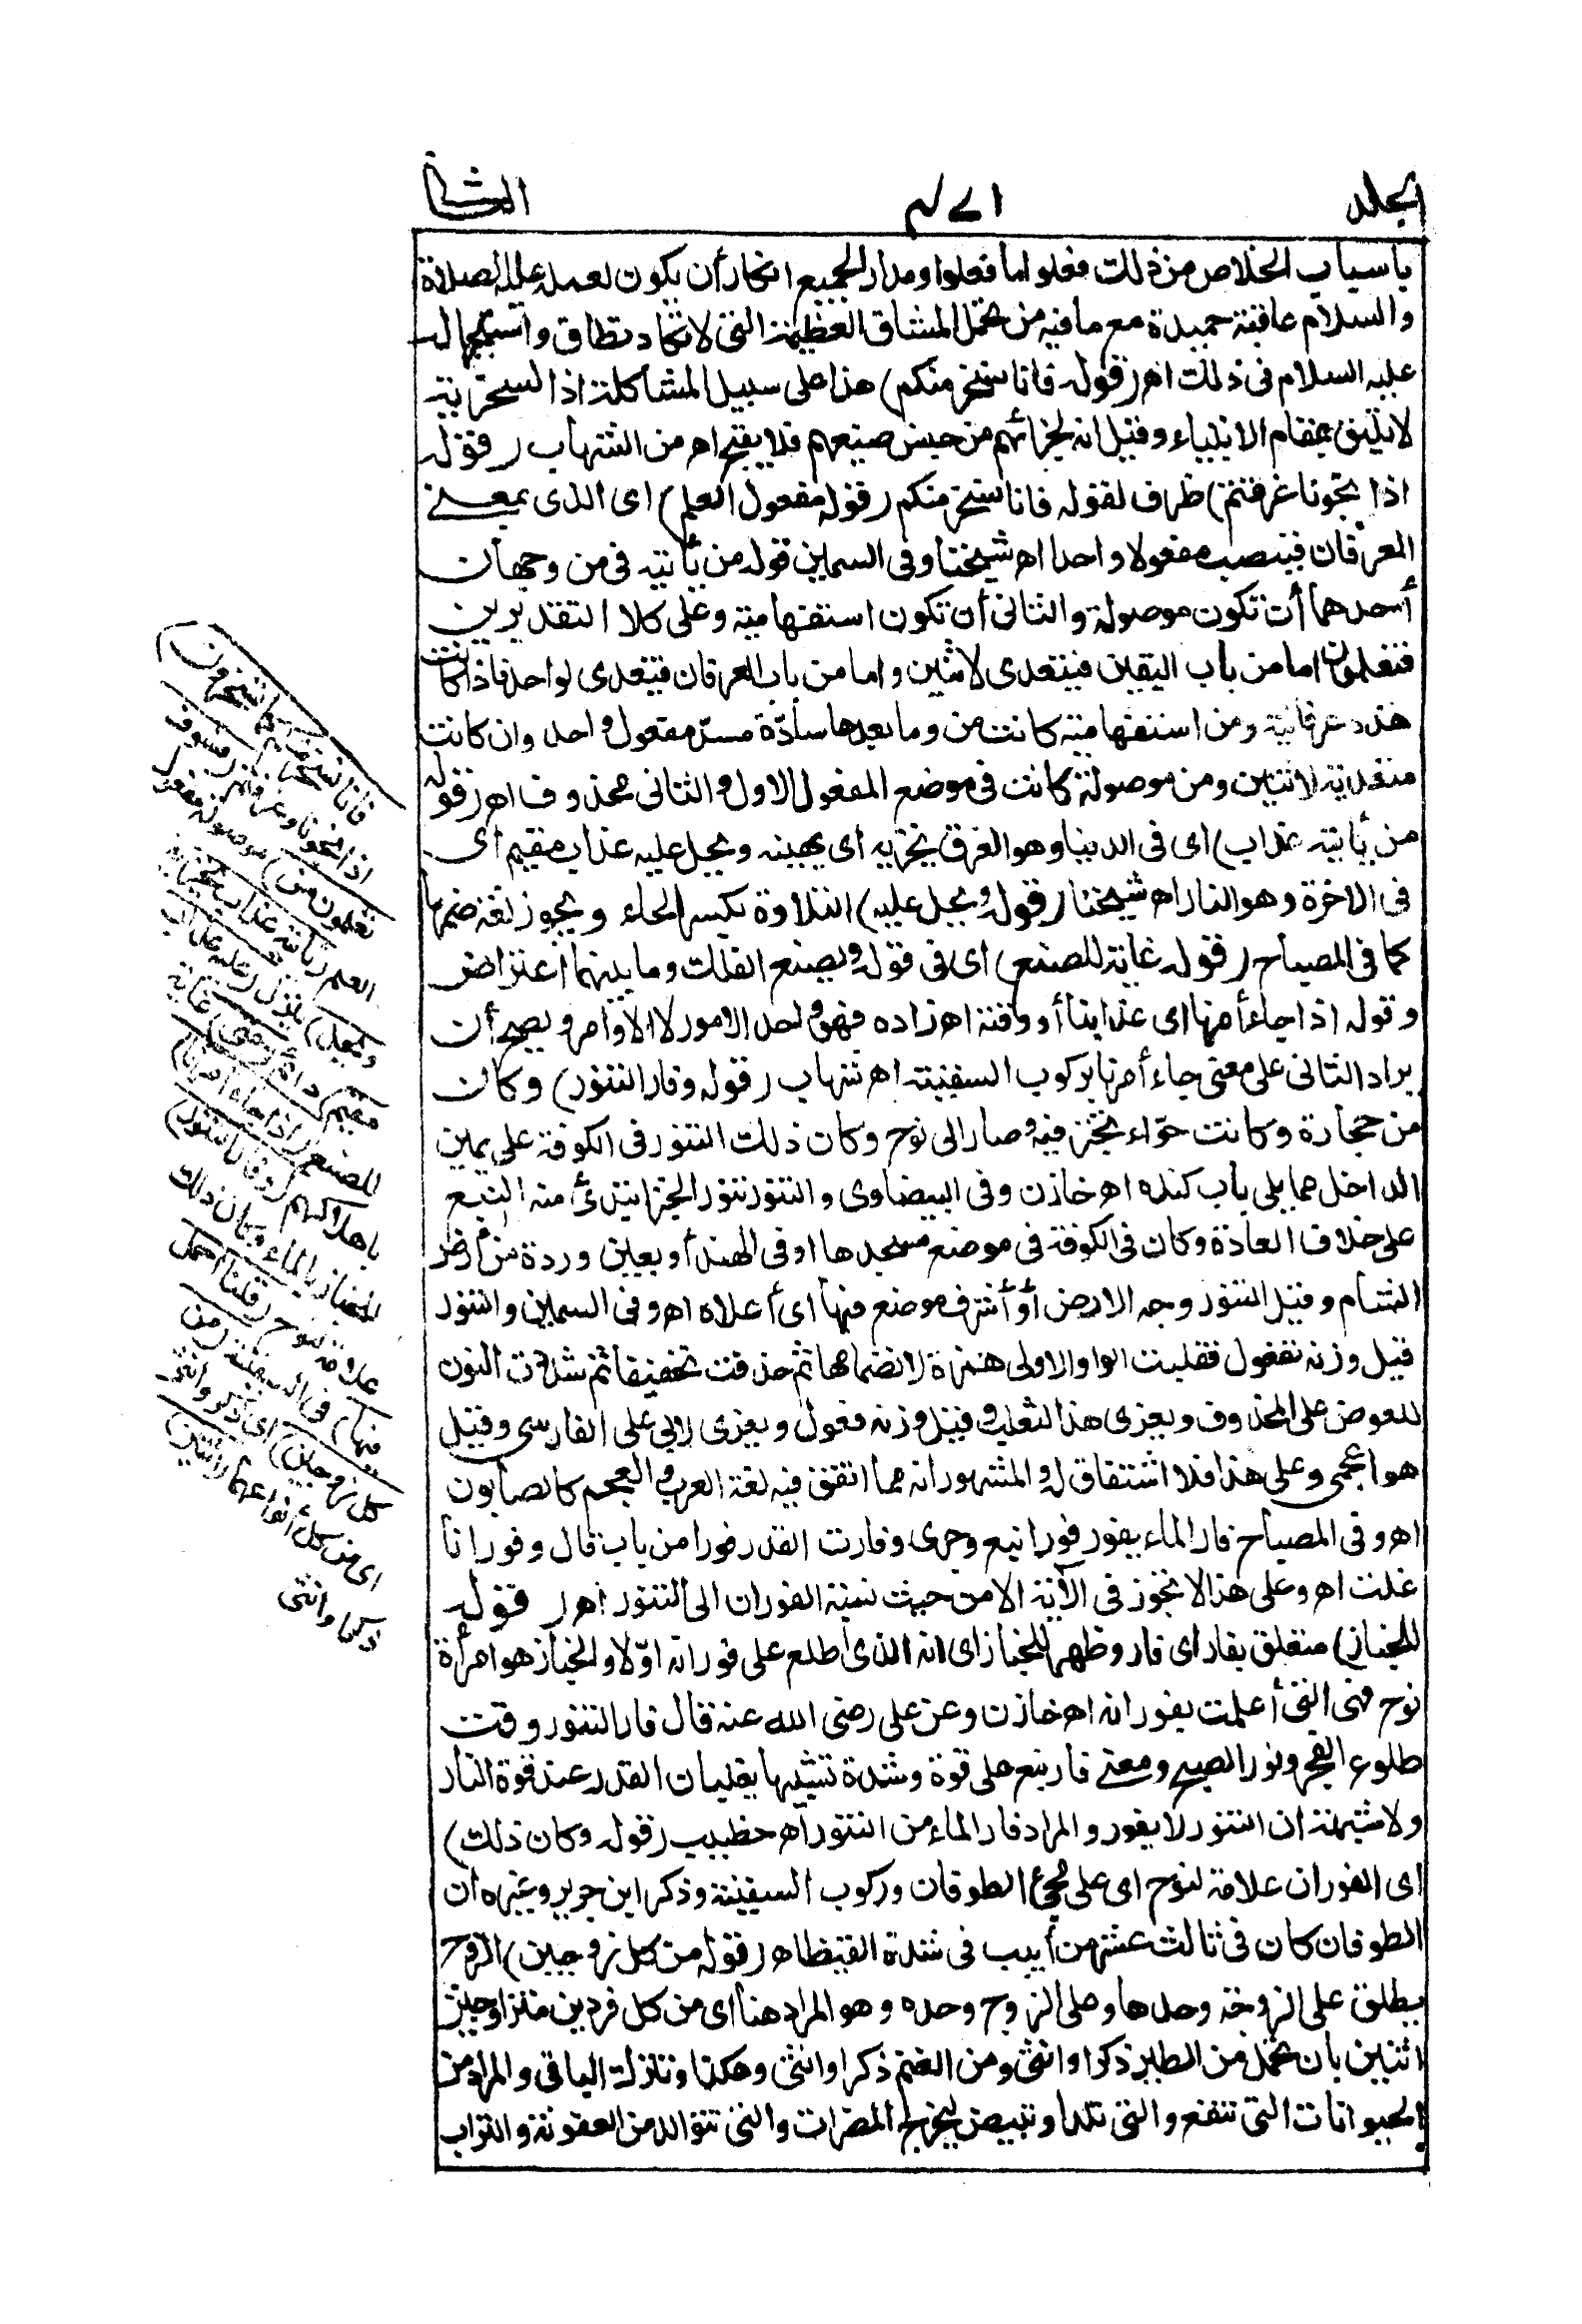 الجلد
٤٧١
الثانى
بأسباب الخلاص من ذلك فعلوا ما فعلوا ومدار الجميع انكار أن يكون لعمله عليه الصلاة
والسلام عاقبة حميدة مع ما فيه من تحمل المشاق العظيمة التى لا تكاد تطاق واستجهاله
عليه السلام فى ذلك اهـ (قوله فانا نسخر منكم) هذا على سبيل المشاكلة اذ السخرية
لا تليق بمقام الانبياء وقيل انه لجزائهم من جنس صنيعهم فلا يقبح اهـ من الشهاب (قوله
اذا نجونا وغرقتم) ظرف لقوله فانا نسخر منكم (قوله مفعول العلم) اى الذى بمعنى
العرفان فينصب مفعولا واحدا اهـ شيخنا وفى السمين قوله من يأتيه فى من وجهان
أحدهما أن تكون موصولة والثانى أن تكون استفهامية وعلى كلا التقديرين
فتعلمون اما من باب اليقين فيتعدى لاثنين واما من باب العرفان فيتعدى لواحد فاذا كانت
هذه عرفانية ومن استفهامية كانت من وما بعدها سادّة مسدّ مفعول واحد وان كانت
متعدية لاثنين ومن موصولة كانت فى موضع المفعول الاول والثانى محذوف اهـ (قوله
من يأتيه عذاب) اى فى الدنيا وهو الغرق يخزيه أى يهينه ويحل عليه عذاب مقيم أى
فى الاخرة وهو النار اهـ شيخنا (قوله ويحل عليه) التلاوة بكسر الحاء ويجوز لغة ضمها
كما فى المصباح (قوله غاية للصنع) أى فى قوله ويصنع الفلك وما بينهما اعتراض
وقوله اذا جاء أمرنا اى عذابنا أو وقته اهـ زاده فهو واحد الامور لا الاوامر ويصح أن
يراد الثانى على معنى جاء أمرنا بركوب السفينة اهـ شهاب (قوله وفار التنور) وكان
من حجارة وكانت حوّاء تخبز فيه وصار الى نوح وكان ذلك التنور فى الكوفة على يمين
الداخل مما يلى باب كنده اهـ خازن وفى البيضاوى والتنور تنور الخبز ابتدئ منه النبع
على خلاف العادة وكان فى الكوفة فى موضع مسجدها او فى الهند أو بعين وردة من أرض
الشام وقيل التنور وجه الارض أو أشرف موضع فيها أى أعلاه اهـ وفى السمين والتنور
قيل وزنه تفعول فقلبت الواو الاولى همزة لانضمامها ثم حذفت تخفيفا ثم شدّدت النون
للعوض على المحذوف ويعزى هذا لثعلب وقيل وزنه فعول ويعزى لابى على الفارسى وقيل
هو اعجمى وعلى هذا فلا اشتقاق له والمشهور انه مما اتفق فيه لغة العرب والعجم كالصابون
اهـ وفى المصباح فار الماء يفور فورا نبع وجرى وفارت القدر فورا من باب قال وفورانا
غلت اهـ وعلى هذا لا تجوز فى الآية الا من حيث نسبة الفوران الى التنور اهـ (قوله
للخباز) متعلق بفار اى فار وظهر للخباز اى انه الذى اطلع على فورانه اوّلا والخباز هو امرأة
نوح فهى التى أعلمت بفورانه اهـ خازن وعن على رضى الله عنه قال فار التنور وقت
طلوع الفجر ونور الصبح ومعنى فار نبع على قوة وشدة تشبيها بغليان القدر عند قوة النار
ولا شبهة ان التنور لا يفور والمراد فار الماء من التنور اهـ خطيب (قوله وكان ذلك)
اى الفوران علامة لنوح اى على مجئ الطوفان وركوب السفينة وذكر ابن جرير وغيره أن
الطوفان كان فى ثالث عشر من أبيب فى شدة القيظ اهـ (قوله من كل زوجين) الزوج
يطلق على الزوجة وحدها وعلى الزوج وحده وهو المراد هنا اى من كل فردين متزاوجين
اثنين بان تحمل من الطير ذكرا وانثى ومن الغنم ذكرا وانثى وهكذا وتترك الباقى والمراد من
الحيوانات التى تنفع والتى تلد او تبيض ليخرج المضرات والتى تتوالد من العفونة والتراب
فانا نسخر منكم كما تسخرون)
اذا نجونا وغرقتم (فسوف
تعلمون من) موصولة مفعول
العلم (يأتيه عذاب يخزيه
ويحل) ينزل (عليه عذاب
مقيم) دائم (حتى) غاية
للصنع (اذا جاء امرنا)
باهلاكهم (وفار التنور)
للخباز بالماء وكان ذلك
علامة لنوح (قلنا احمل
فيها) فى السفينة (من
كل زوجين) اى ذكر وانثى
اى من كل أنواعهما (اثنين)
ذكرا وانثى